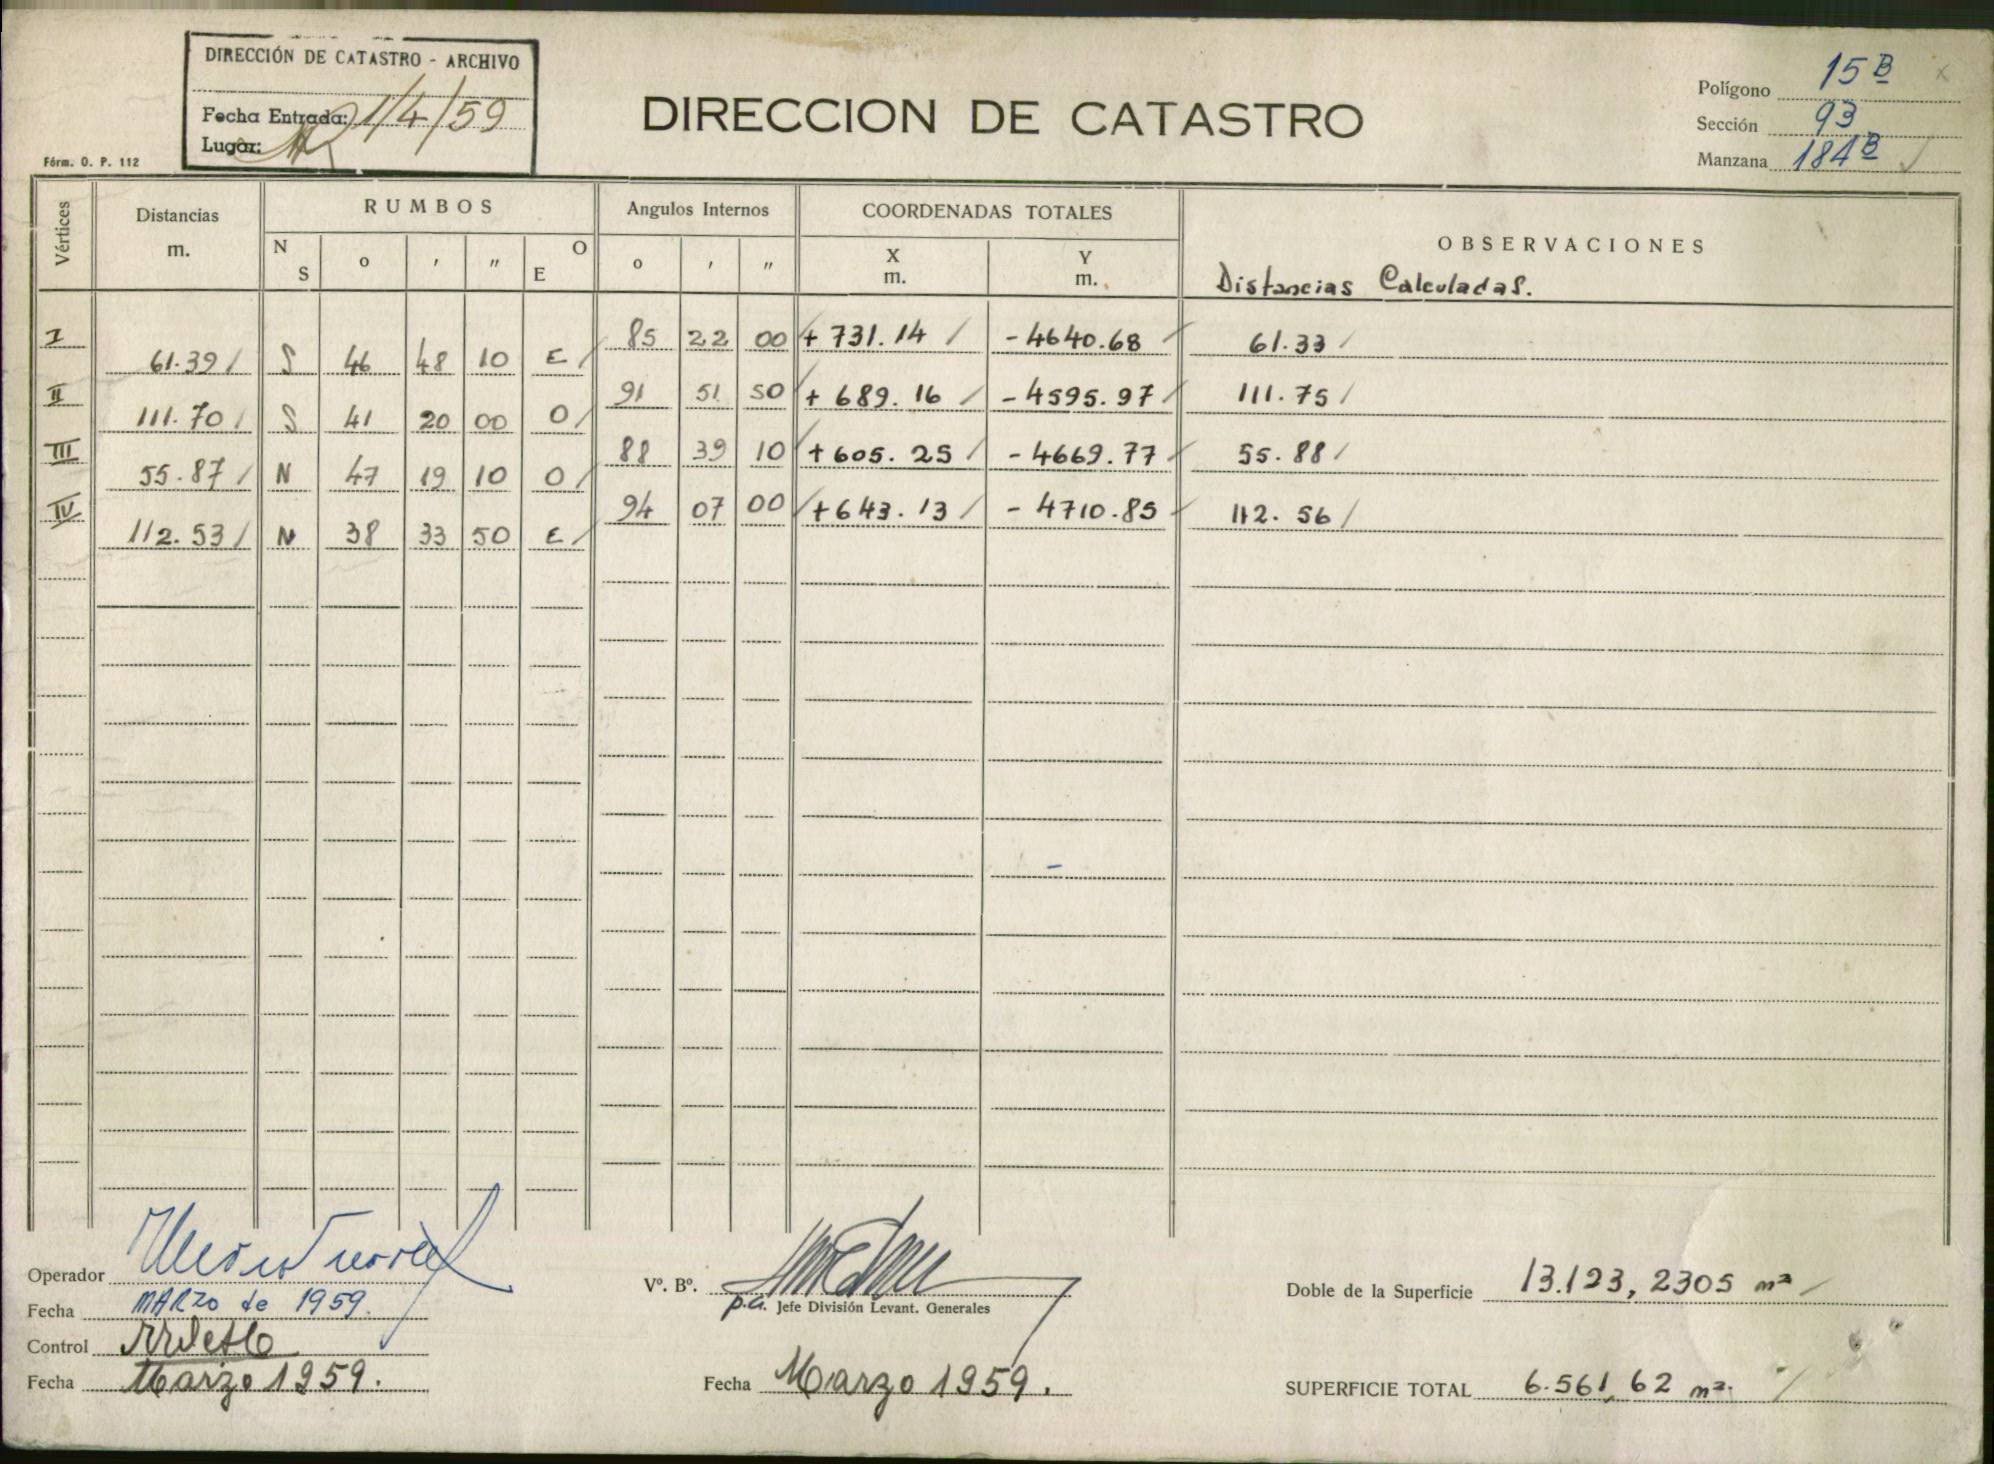 DIRECCIÓN DE CATASTRO - ARCHIVO
Fecha Entrada: 21/4/59
Lugar:
Fórm. O. P. 112
DIRECCION DE CATASTRO
Polígono 15 B
Sección 93
Manzana 184 B
Vértices Distancias m. RUMBOS N S o ' " E O Angulos Internos o ' " COORDENADAS TOTALES X m. Y m. OBSERVACIONES
Distancias Calculadas.
I 85 22 00 + 731.14 - 4640.68 61.33
61.39 S 46 48 10 E
II 91 51 50 + 689.16 - 4595.97 111.75
111.70 S 41 20 00 O
III 88 39 10 + 605.25 - 4669.77 55.88
55.87 N 47 19 10 O
IV 94 07 00 + 643.13 - 4710.85 112.56
112.53 N 38 33 50 E
Operador
Fecha MARZO de 1959.
Control
Fecha Marzo 1959.
Vº. Bº.
p.a. Jefe División Levant. Generales
Fecha Marzo 1959.
Doble de la Superficie 13.123,2305 m²
SUPERFICIE TOTAL 6.561,62 m².